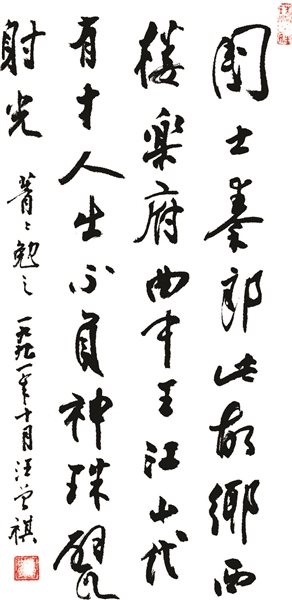 國士秦郎此故鄉西
楼樂府曲中王江山代
有才人出不負神珠甓
射光 菁〻勉之 一九九一年十月汪曾祺